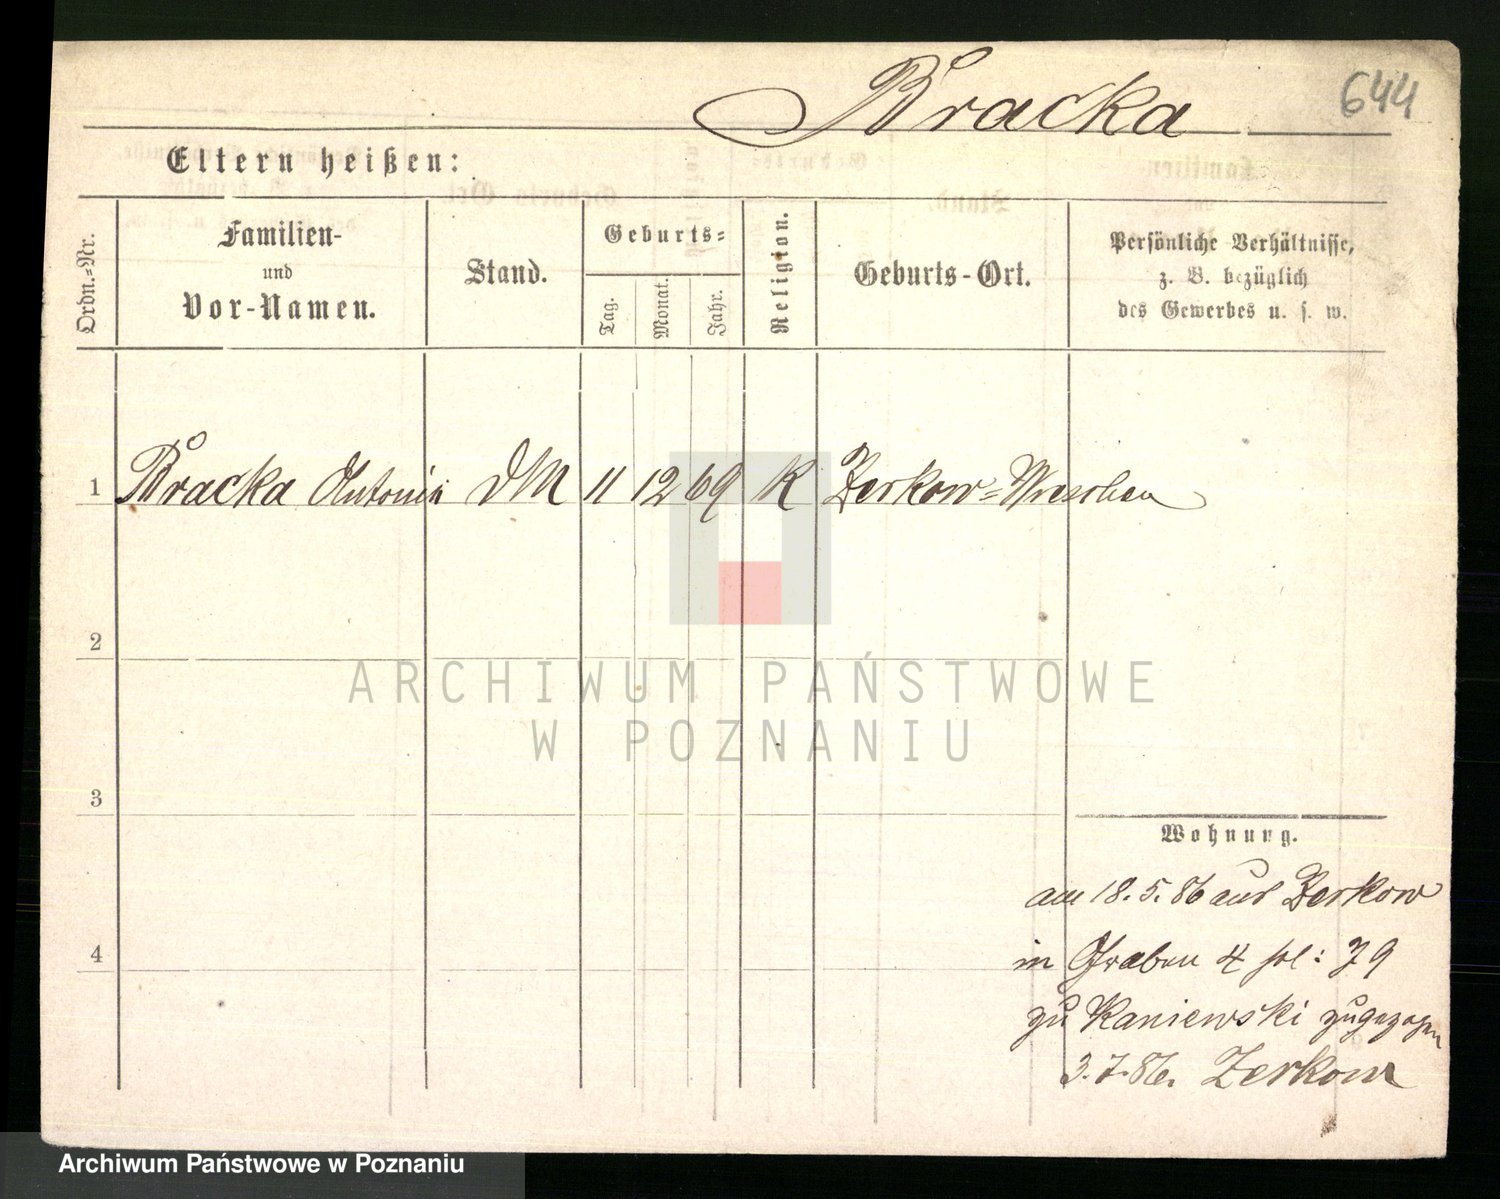 Bracka
644
Eltern heißen:
Ordn.-Nr.
Familien-
und
Vor-Namen.
Stand.
Geburts-
Tag.
Monat.
Jahr.
Religion.
Geburts-Ort.
Persönliche Verhältnisse,
z. B. bezüglich
des Gewerbes u. s. w.
1 Bracka Antonie DM 11 12 69 K Zerkow-Wreschen
2
3
4
Wohnung.
am 18.5.86 aus Zerkow
in Graben 4 pol: J 9
zu Kaniewski zugezogen
3.7.86. Zerkow
ARCHIWUM PAŃSTWOWE
W POZNANIU
Archiwum Państwowe w Poznaniu